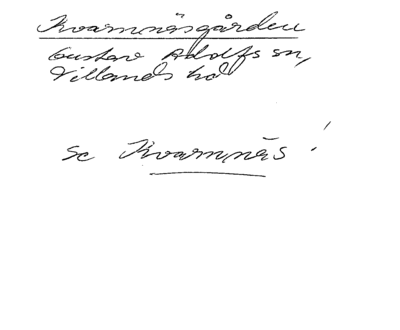 Kvarnnäsgården
Gustav Adolfs sn,
Villands hd
se Kvarnnäs!